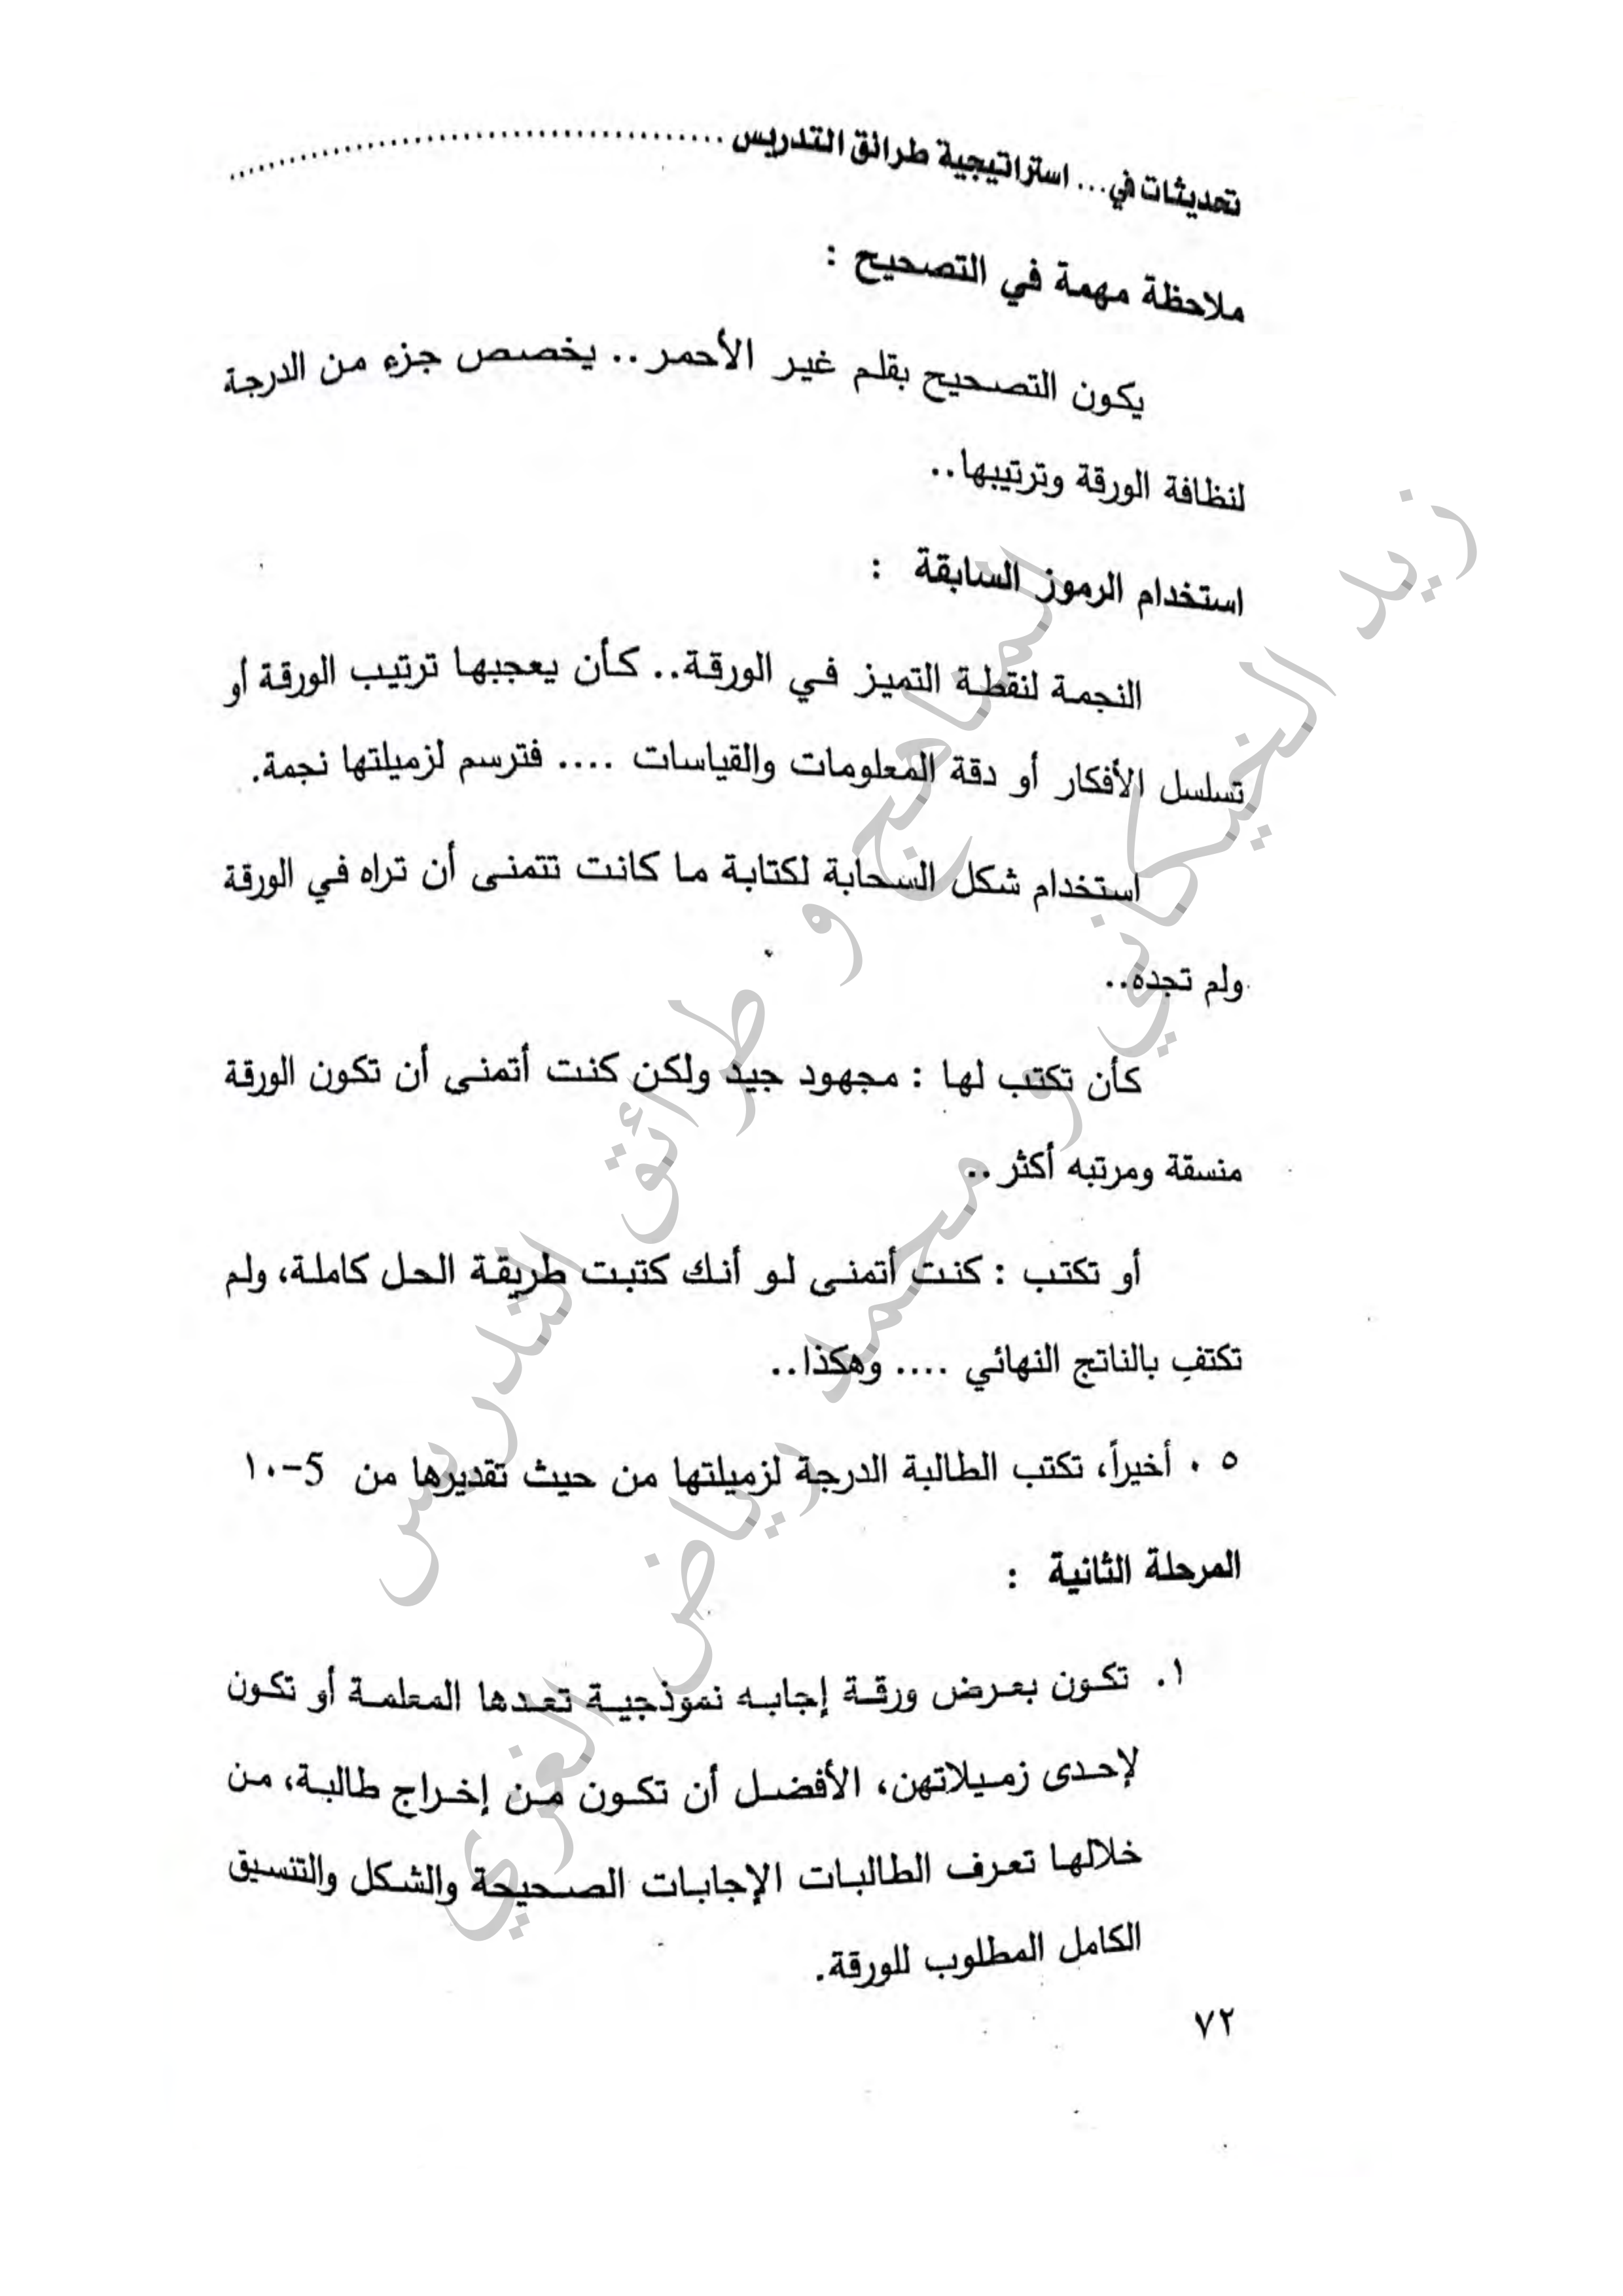 تحديثات في... استراتيجية طرائق التدريس ........................................
ملاحظة مهمة في التصحيح :
يكون التصحيح بقلم غير الأحمر.. يخصص جزء من الدرجة
لنظافة الورقة وترتيبها..
استخدام الرموز السابقة :
النجمة لنقطة التميز في الورقة.. كأن يعجبها ترتيب الورقة أو
تسلسل الأفكار أو دقة المعلومات والقياسات .... فترسم لزميلتها نجمة.
استخدام شكل السحابة لكتابة ما كانت تتمنى أن تراه في الورقة
ولم تجده..
كأن تكتب لها : مجهود جيد ولكن كنت أتمنى أن تكون الورقة
منسقة ومرتبه أكثر..
أو تكتب : كنت أتمنى لو أنك كتبت طريقة الحل كاملة، ولم
تكتفِ بالناتج النهائي .... وهكذا..
٥ . أخيراً، تكتب الطالبة الدرجة لزميلتها من حيث تقديرها من 5-١٠
المرحلة الثانية :
١. تكون بعرض ورقة إجابه نموذجية تعدها المعلمة أو تكون
لإحدى زميلاتهن، الأفضل أن تكون من إخراج طالبة، من
خلالها تعرف الطالبات الإجابات الصحيحة والشكل والتنسيق
الكامل المطلوب للورقة.
٧٢
المناهج و طرائق التدريس
زيد الخيكاني و محمد رياض الغزي